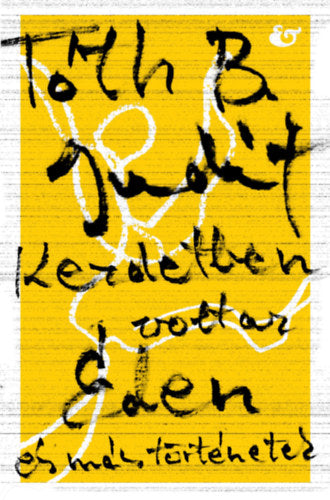 &
Tóth B.
Judit
Kezdetben
volt az
Éden
és más történetek